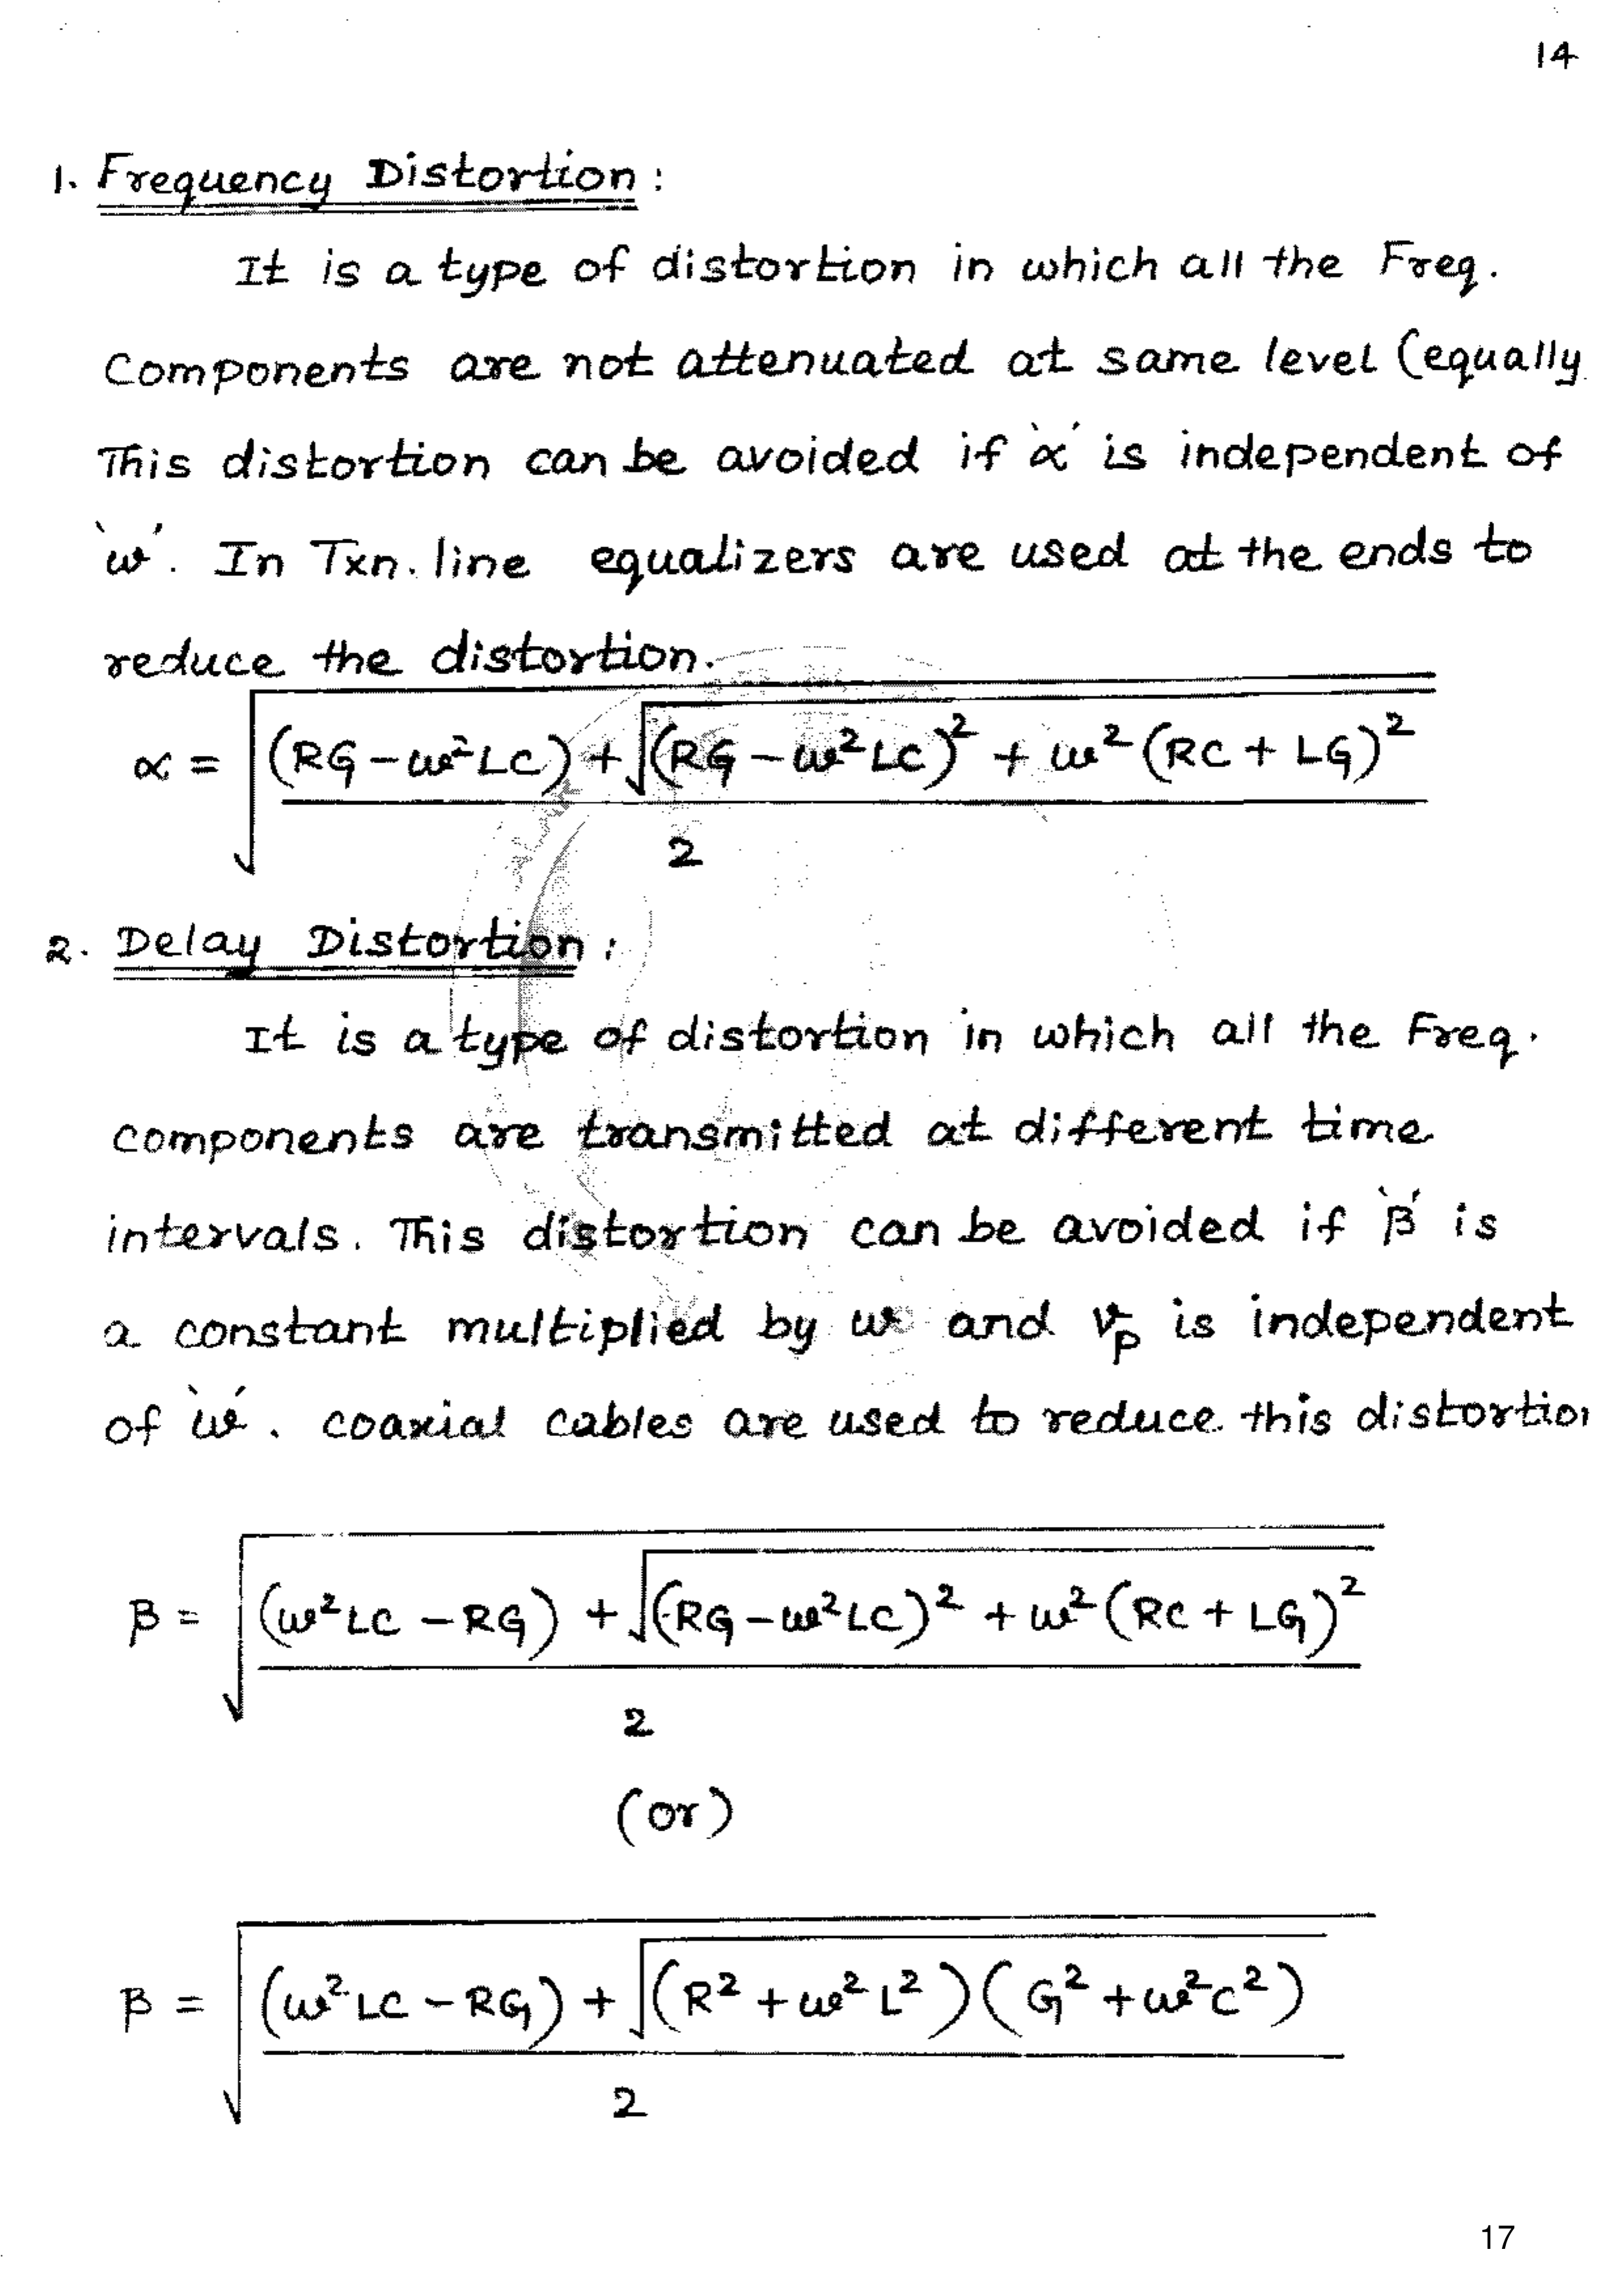 14
1. Frequency Distortion :
It is a type of distortion in which all the Freq.
Components are not attenuated at same level (equally
This distortion can be avoided if 'α' is independent of
'ω'. In Txn. line equalizers are used at the ends to
reduce the distortion.
α = √(((RG - ω²LC) + √((RG - ω²LC)² + ω²(RC + LG)²)) / 2)
2. Delay Distortion :
It is a type of distortion in which all the Freq.
components are transmitted at different time
intervals. This distortion can be avoided if 'β' is
a constant multiplied by ω and vₚ is independent
of 'ω'. coaxial cables are used to reduce this distortion
β = √(((ω²LC - RG) + √((RG - ω²LC)² + ω²(RC + LG)²)) / 2)
(or)
β = √(((ω²LC - RG) + √((R² + ω²L²)(G² + ω²C²))) / 2)
17